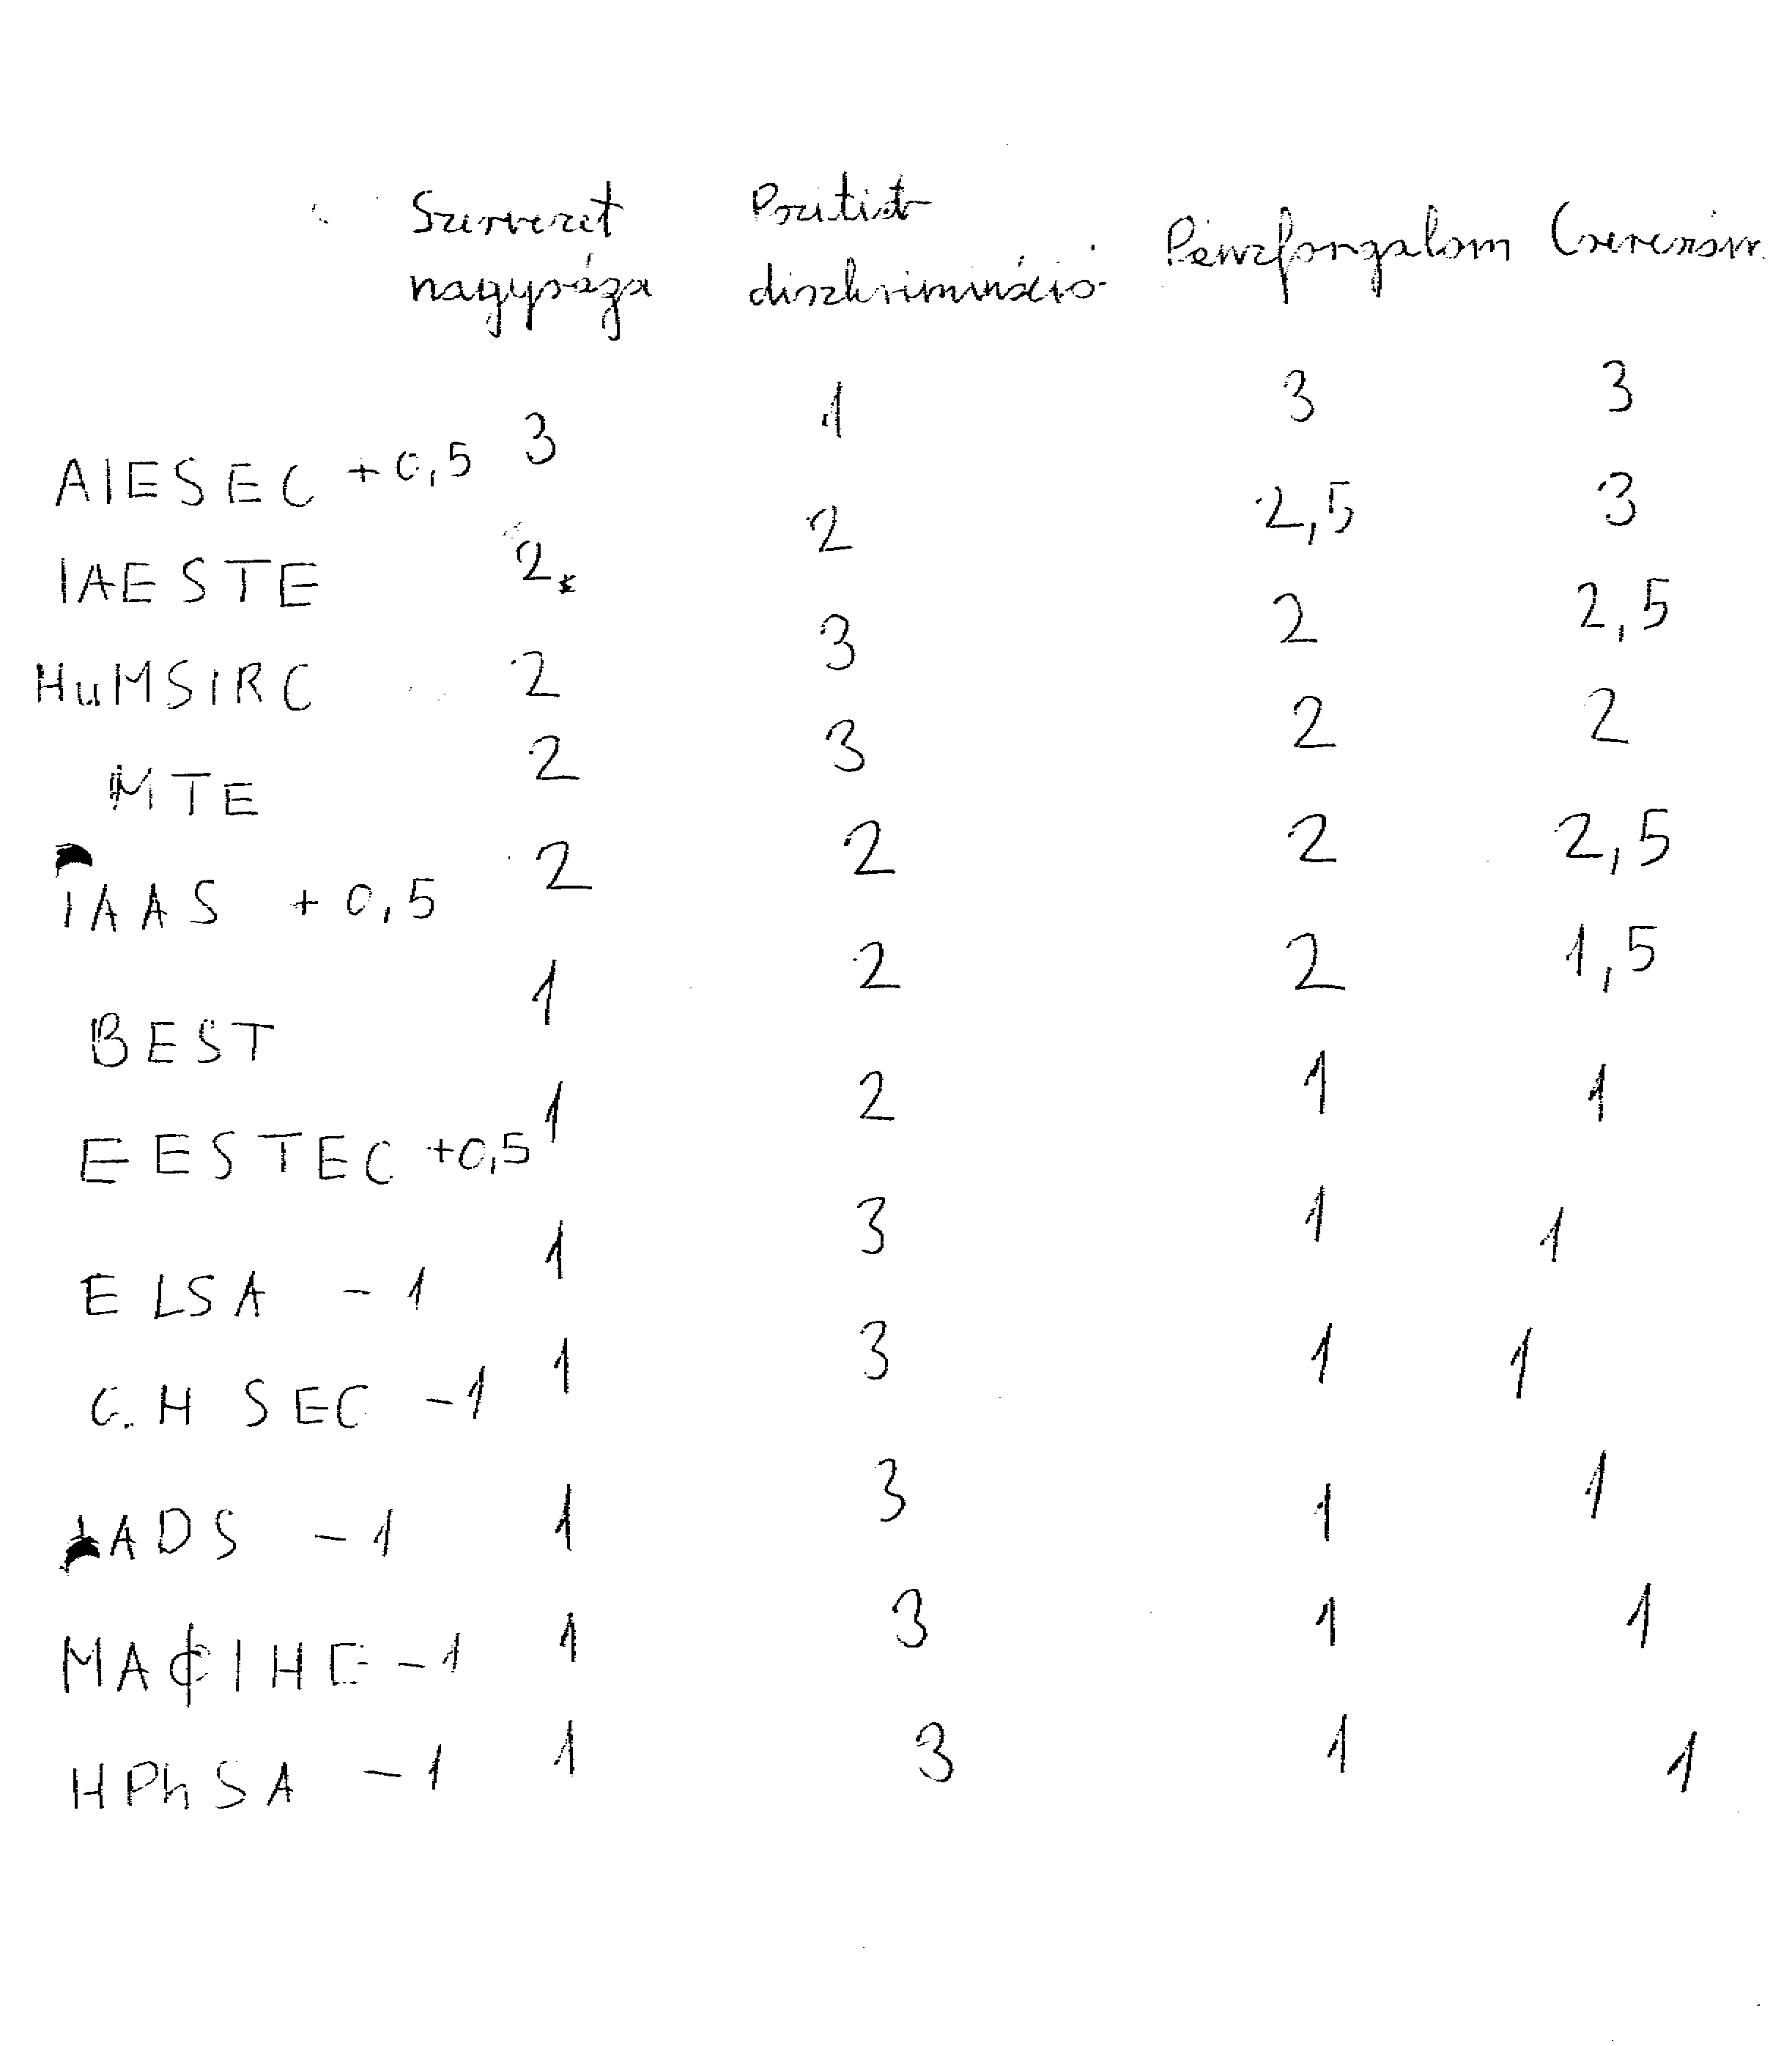 Szervezet Pozitív Pénzforgalom Csereszám
nagysága diszkrimináció
AIESEC +0,5 3 1 3 3
IAESTE 2 2 2,5 3
HuMSIRC 2 3 2 2,5
MTE 2 3 2 2
IAAS +0,5 2 2 2 2,5
BEST 1 2 2 1,5
EESTEC +0,5 1 2 1 1
ELSA -1 1 3 1 1
C.H SEC -1 1 3 1 1
IADS -1 1 3 1 1
MAΦIHE -1 1 3 1 1
HPhSA -1 1 3 1 1